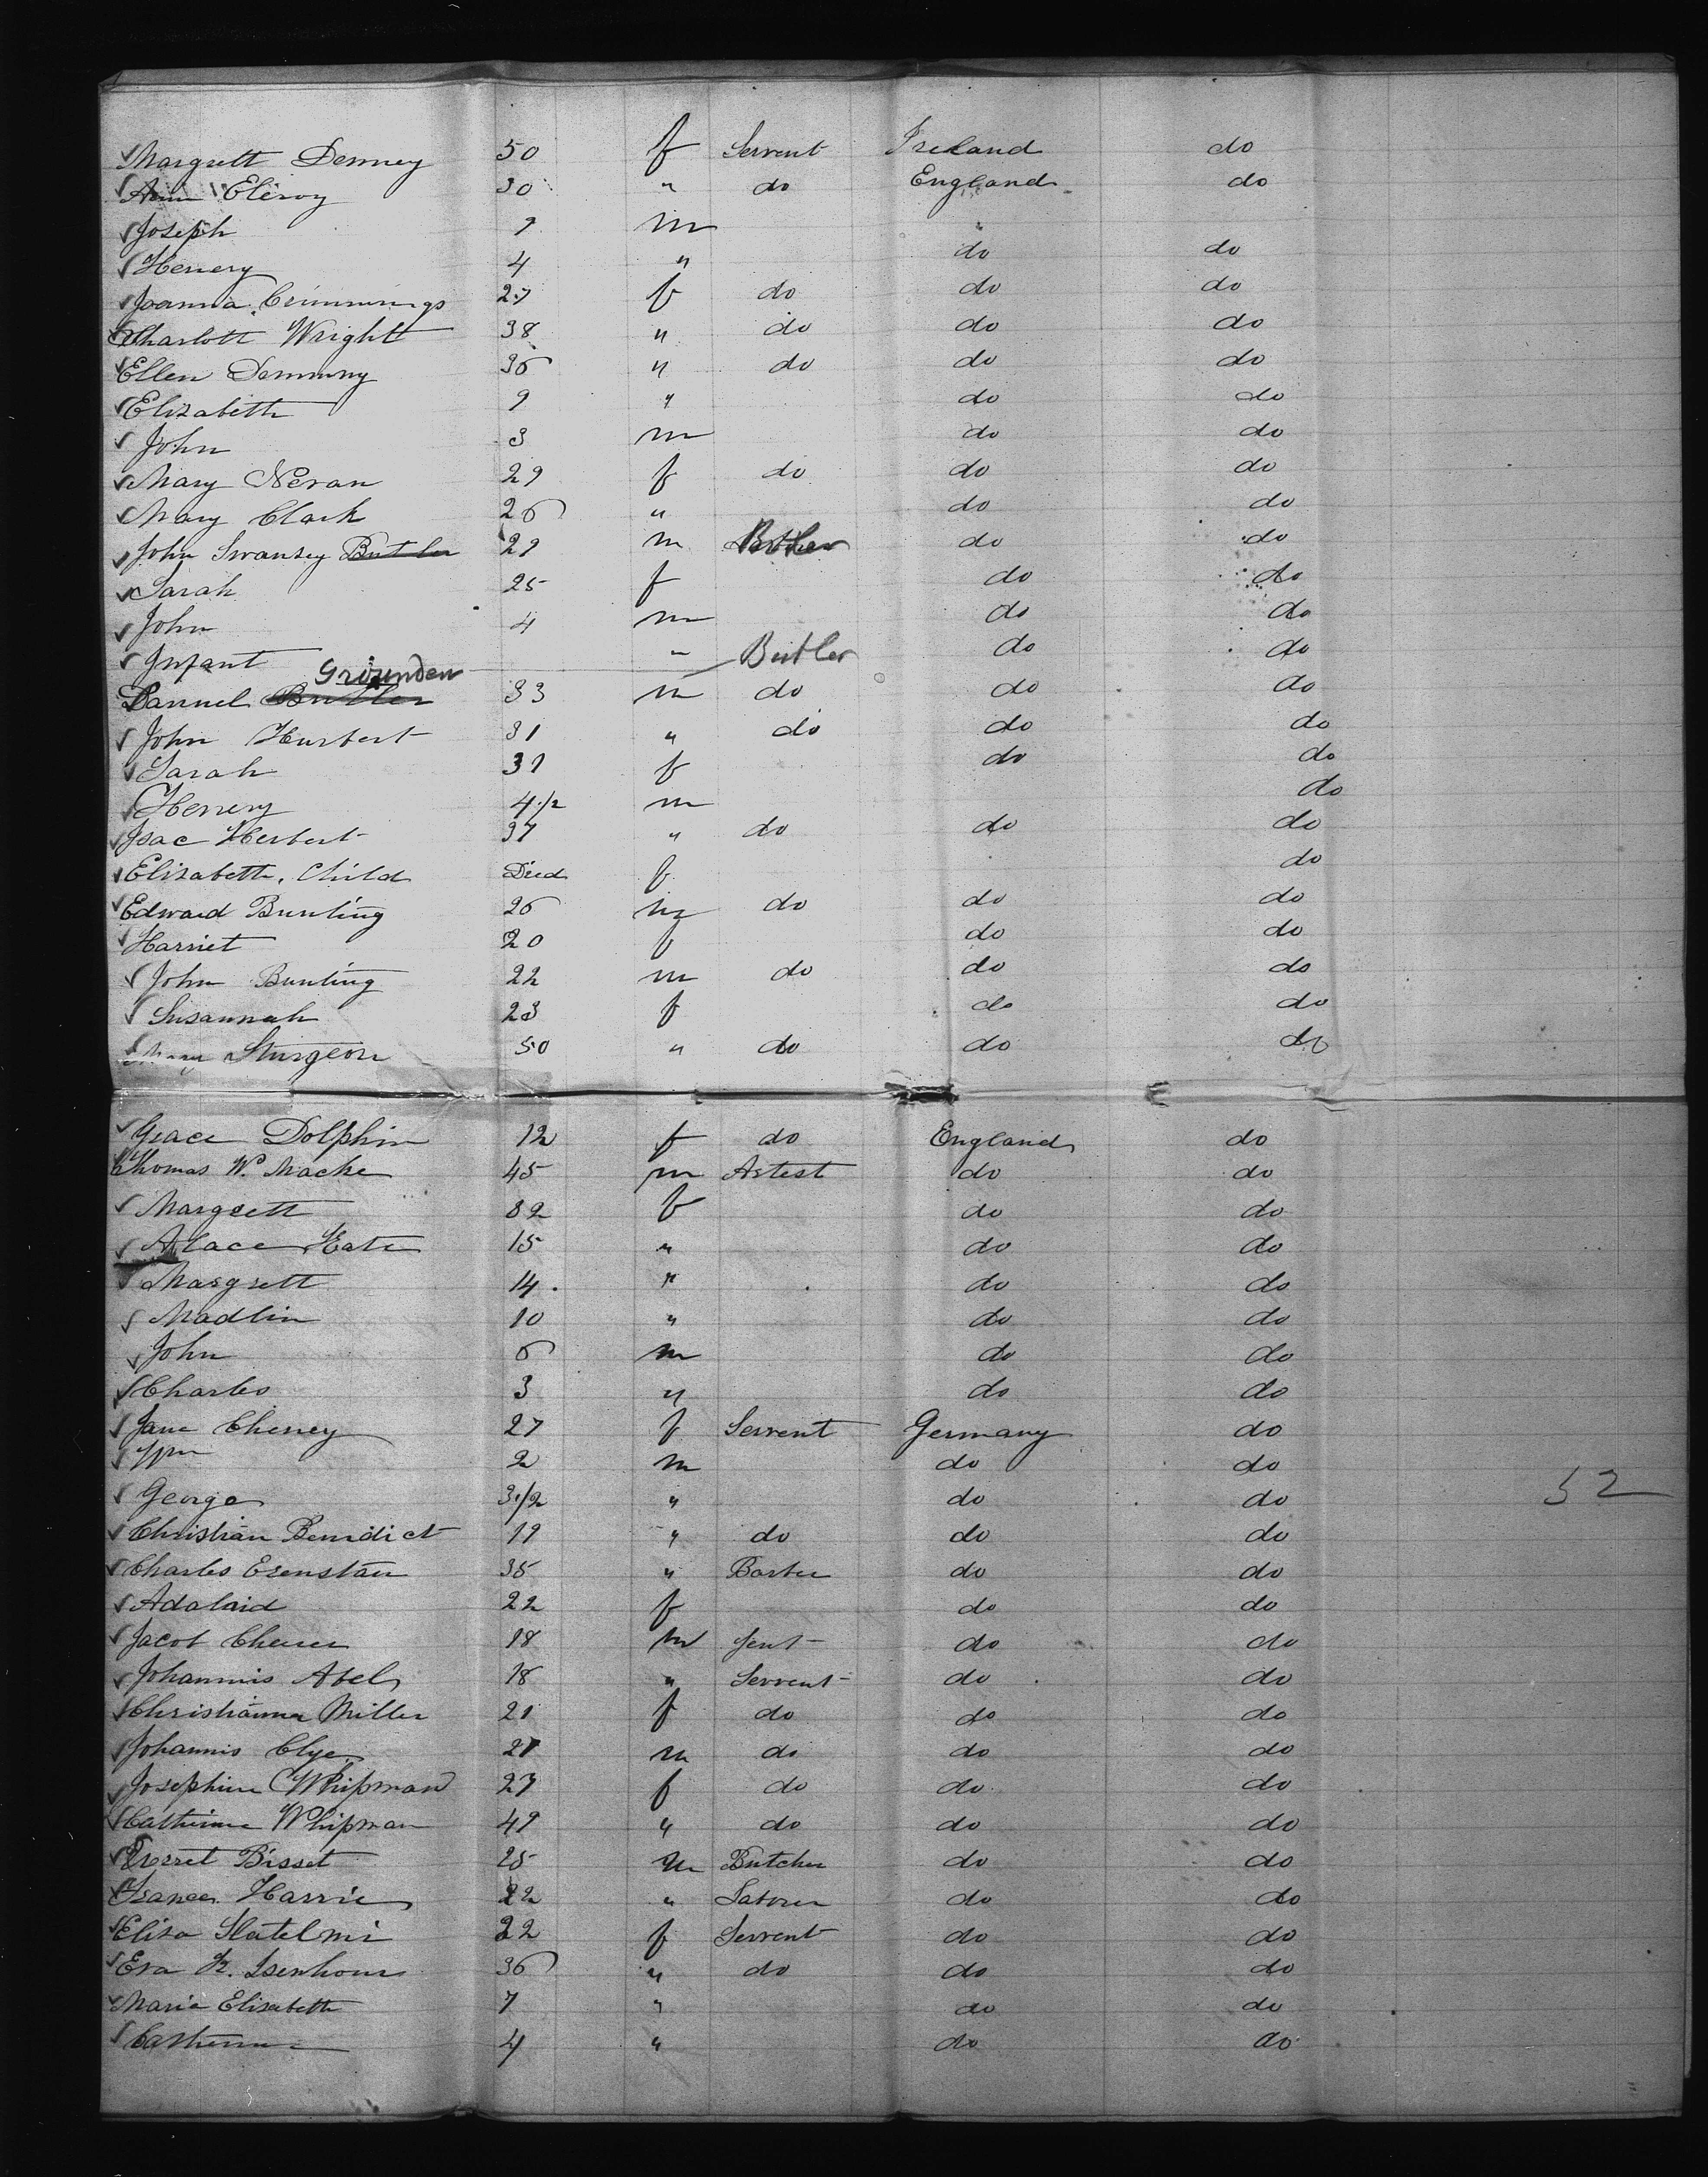 Margrett Denney 50 f Servent Ireland do
Ann Eleroy 30 " do England do
Joseph 9 m "
Henery 4 " do do
Joanna Crimmings 27 f do do do
Charlott Wright 38 " do do do
Ellen Demmny 36 " do do do
Elizabeth 9 " do do
John 3 m do do
Mary Neran 29 f do do do
Mary Clark 26 " do do
John Swansey Butler 29 m Butler do do
Sarah 25 f do do
John 4 m do do
Infant " Butler do do
Grounden
Dannel Butler 33 m do do do
John Hurbert 31 " do do do
Sarah 31 f do do
Henery 4 1/2 m do
Isac Herbert 37 " do do do
Elizabeth. Child Died f do
Edward Bunting 26 m do do do
Harriet 20 f do do
John Bunting 22 m do do do
Susannah 23 f do do
Mary Sturgeon 50 " do do do
Grace Dolphin 12 f do England do
Thomas W. Macke 45 m Artest do do
Margrett 32 f do do
Alace Kate 15 " do do
Margrett 14 " do do
Madlin 10 " do do
John 6 m do do
Charles 3 " do do
Jane Cheney 27 f Servent Germany do
Wm 2 m do do
George 3 1/2 " do do
Christian Benidict 19 " do do do
Charles Erenstan 35 " Barber do do
Adalaid 22 f do do
Jacob 18 m Gent do do
Johannis Abel 18 " Servent do do
Christianna Miller 21 f do do do
Johannis Clye 21 m do do do
Josephine Whipman 27 f do do do
Catherine Whipman 49 " do do do
Bisset 25 m Butcher do do
Frances Harrie 22 " Laborer do do
Eliza Slatelmi 22 f Servent do do
Eva K. Isenhour 36 " do do do
Maria Elisabeth 7 " do do
Catherine 4 " do do
52